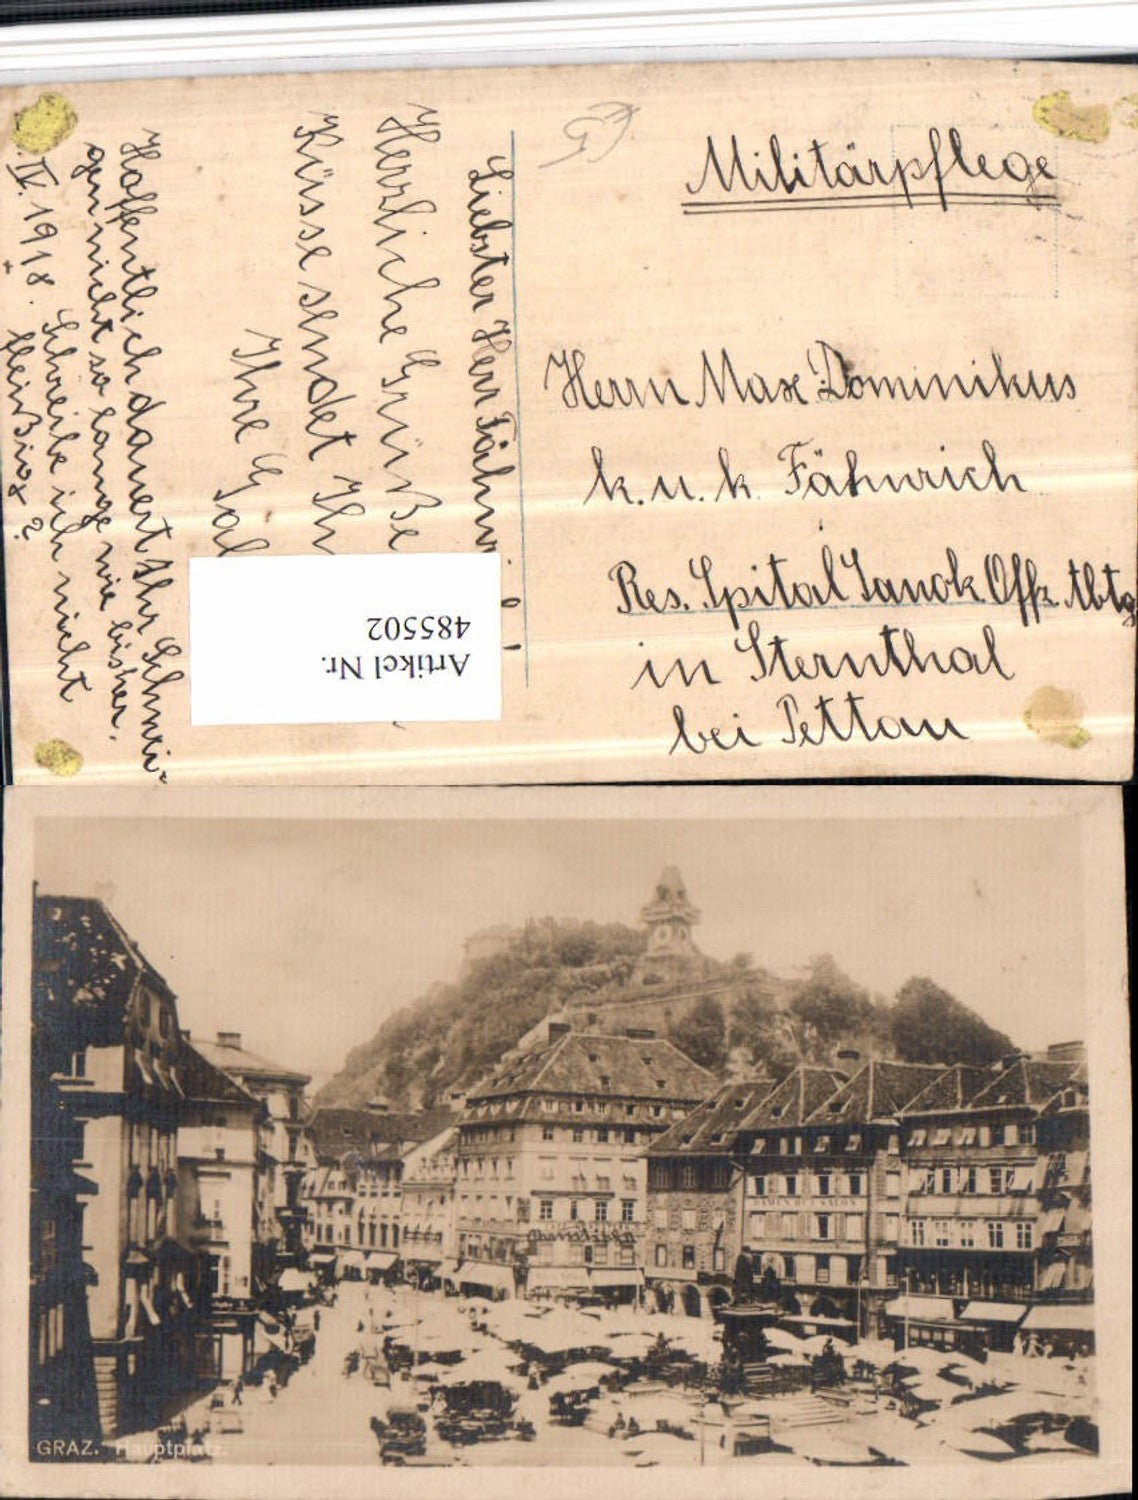 Militärpflege
Herrn Max Dominikus
k. u. k. Fähnrich
Res. Spital Sanok Offz. Abtg
in Sternthal
bei Pettau
Liebster Herr Fähnri
Herzliche Grüße
Küsse sendet Ih
Ihre
Hoffentlich dauert Ihr Schwei-
gen nicht so lange wie bisher.
IV. 1918. Schreibe ich nicht
fleißig?
Artikel Nr.
485502
GRAZ. Hauptplatz.